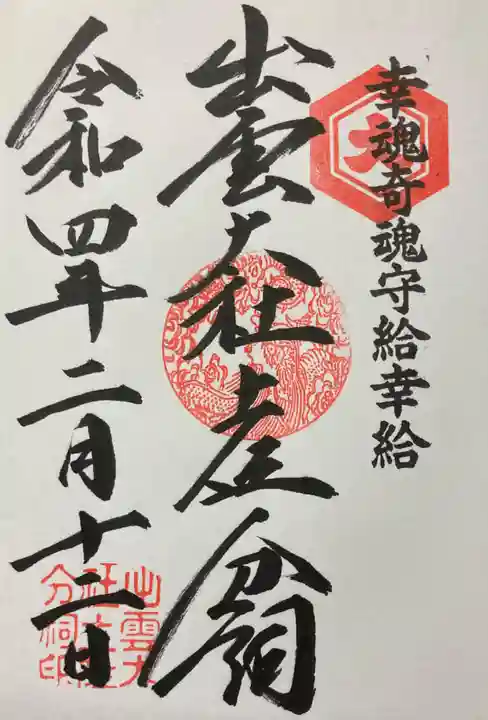 幸魂奇魂守給幸給
大
出雲大社土庄分祠
令和四年二月十二日
出雲大
社土庄
分祠印